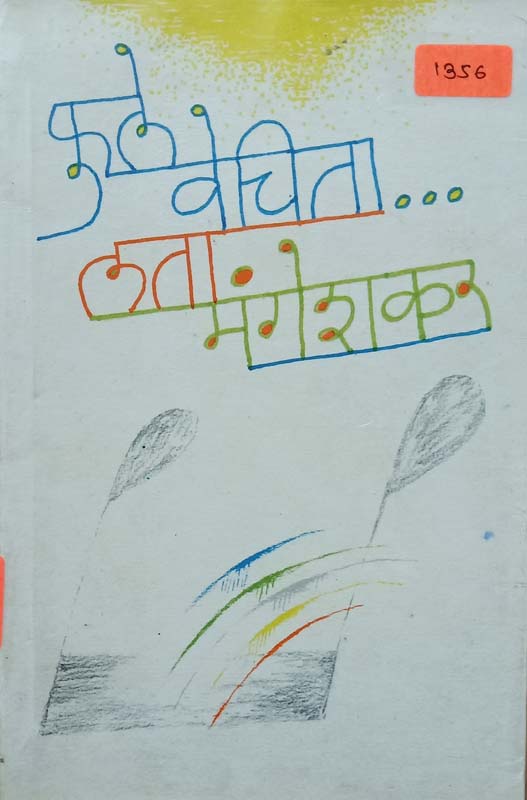 1356
फुले
वेचिता...
लता
मंगेशकर